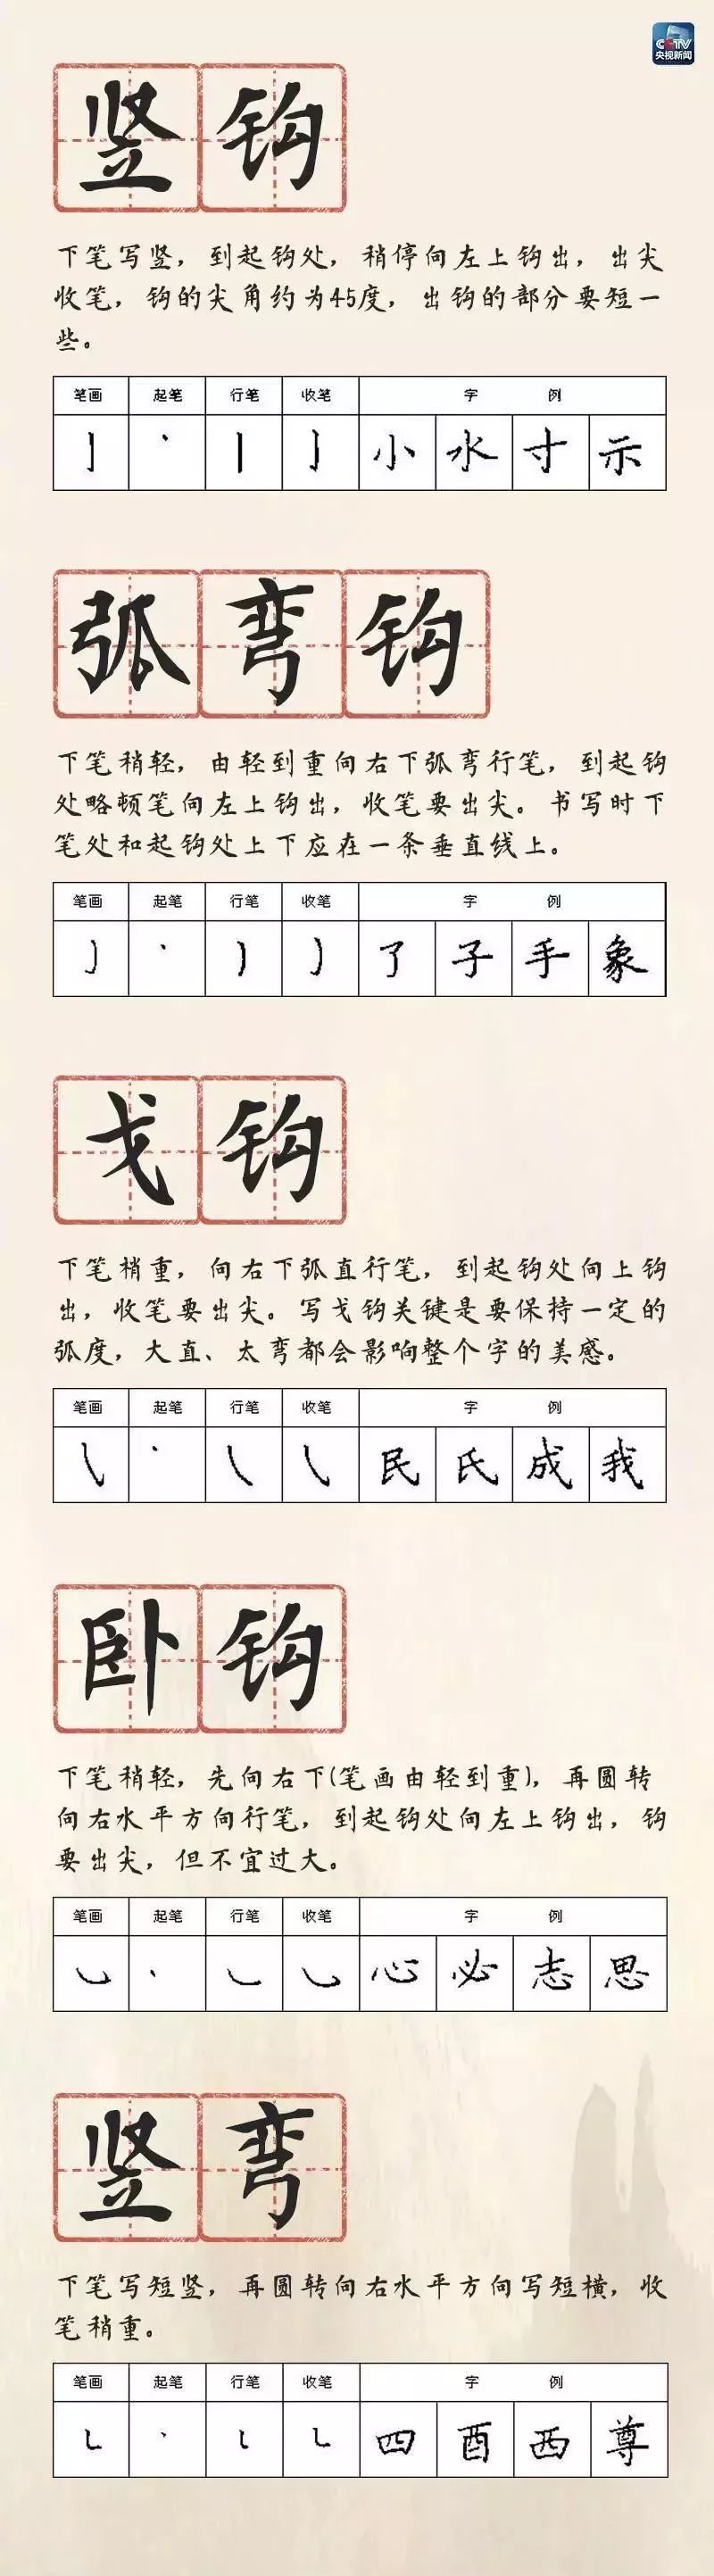 CCTV
央视新闻
竖钩
下笔写竖，到起钩处，稍停向左上钩出，出尖
收笔，钩的尖角约为45度，出钩的部分要短一
些。
笔画 起笔 行笔 收笔 字 例
小 水 寸 示
弧弯钩
下笔稍轻，由轻到重向右下弧弯行笔，到起钩
处略顿笔向左上钩出，收笔要出尖。书写时下
笔处和起钩处上下应在一条垂直线上。
笔画 起笔 行笔 收笔 字 例
了 子 手 象
戈钩
下笔稍重，向右下弧直行笔，到起钩处向上钩
出，收笔要出尖。写戈钩关键是要保持一定的
弧度，大直、太弯都会影响整个字的美感。
笔画 起笔 行笔 收笔 字 例
民 氏 成 我
卧钩
下笔稍轻，先向右下(笔画由轻到重)，再圆转
向右水平方向行笔，到起钩处向左上钩出，钩
要出尖，但不宜过大。
笔画 起笔 行笔 收笔 字 例
心 必 志 思
竖弯
下笔写短竖，再圆转向右水平方向写短横，收
笔稍重。
笔画 起笔 行笔 收笔 字 例
四 酉 西 尊